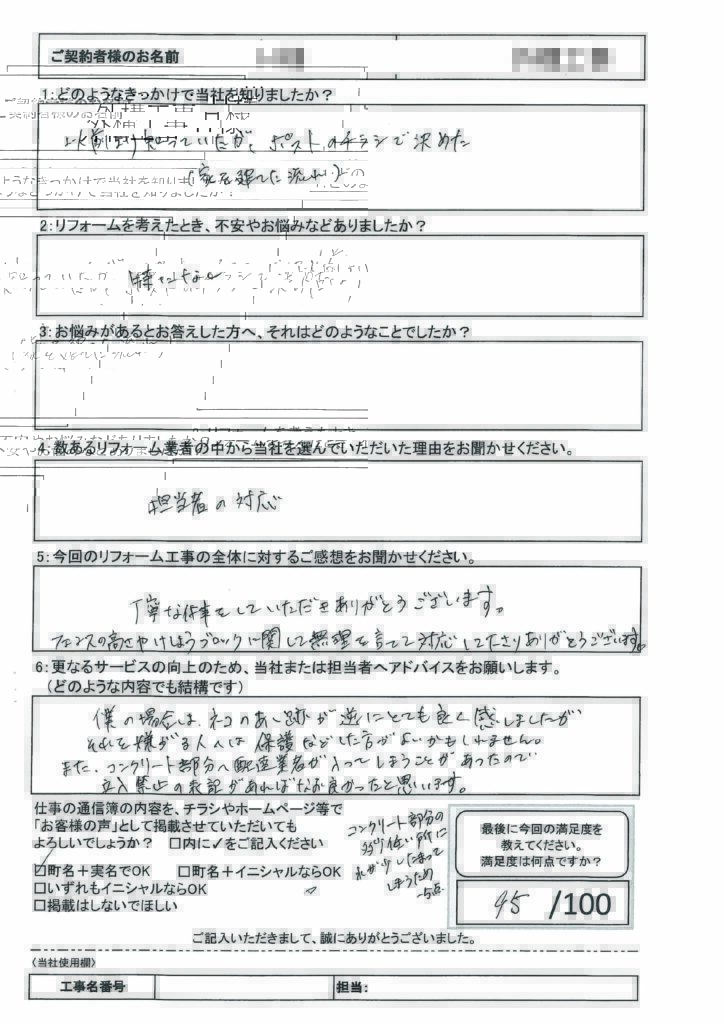 ご契約者様のお名前
1:どのようなきっかけで当社を知りましたか?
以前より知っていたが、ポストのチラシで決めた
(家を建てた流れ)
2:リフォームを考えたとき、不安やお悩みなどありましたか?
特になし
3:お悩みがあるとお答えした方へ、それはどのようなことでしたか?
4:数あるリフォーム業者の中から当社を選んでいただいた理由をお聞かせください。
担当者の対応
5:今回のリフォーム工事の全体に対するご感想をお聞かせください。
丁寧な仕事をしていただきありがとうございます。
フェンスの高さやけしょうブロックに関して無理を言って対応してくださりありがとうございます。
6:更なるサービスの向上のため、当社または担当者へアドバイスをお願いします。
(どのような内容でも結構です)
僕の場合は、ネコのあし跡が逆にとても良く感じましたが
それを嫌がる人人は保護などした方がよいかもしれません。
また、コンクリート部分へ配達業者が入ってしまうことがあったので
立入禁止の表記があればなお良かったと思います。
仕事の通信簿の内容を、チラシやホームページ等で
「お客様の声」として掲載させていただいても
よろしいでしょうか? □内に✓をご記入ください
☑町名+実名でOK □町名+イニシャルならOK
□いずれもイニシャルならOK
□掲載はしないでほしい
コンクリート部分の
低い所に
水が少したまって
しまうため
-5点
最後に今回の満足度を
教えてください。
満足度は何点ですか?
95 /100
ご記入いただきまして、誠にありがとうございました。
(当社使用欄)
工事名番号
担当: